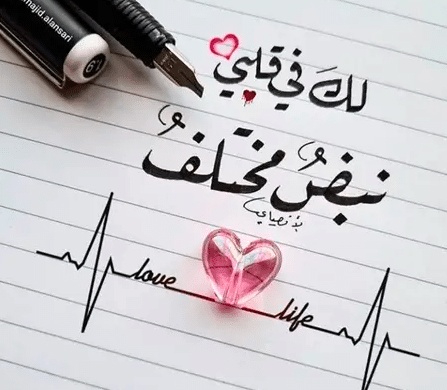 majid.alansari
لكَ في قلبي
نبضٌ مختلفُ
love life